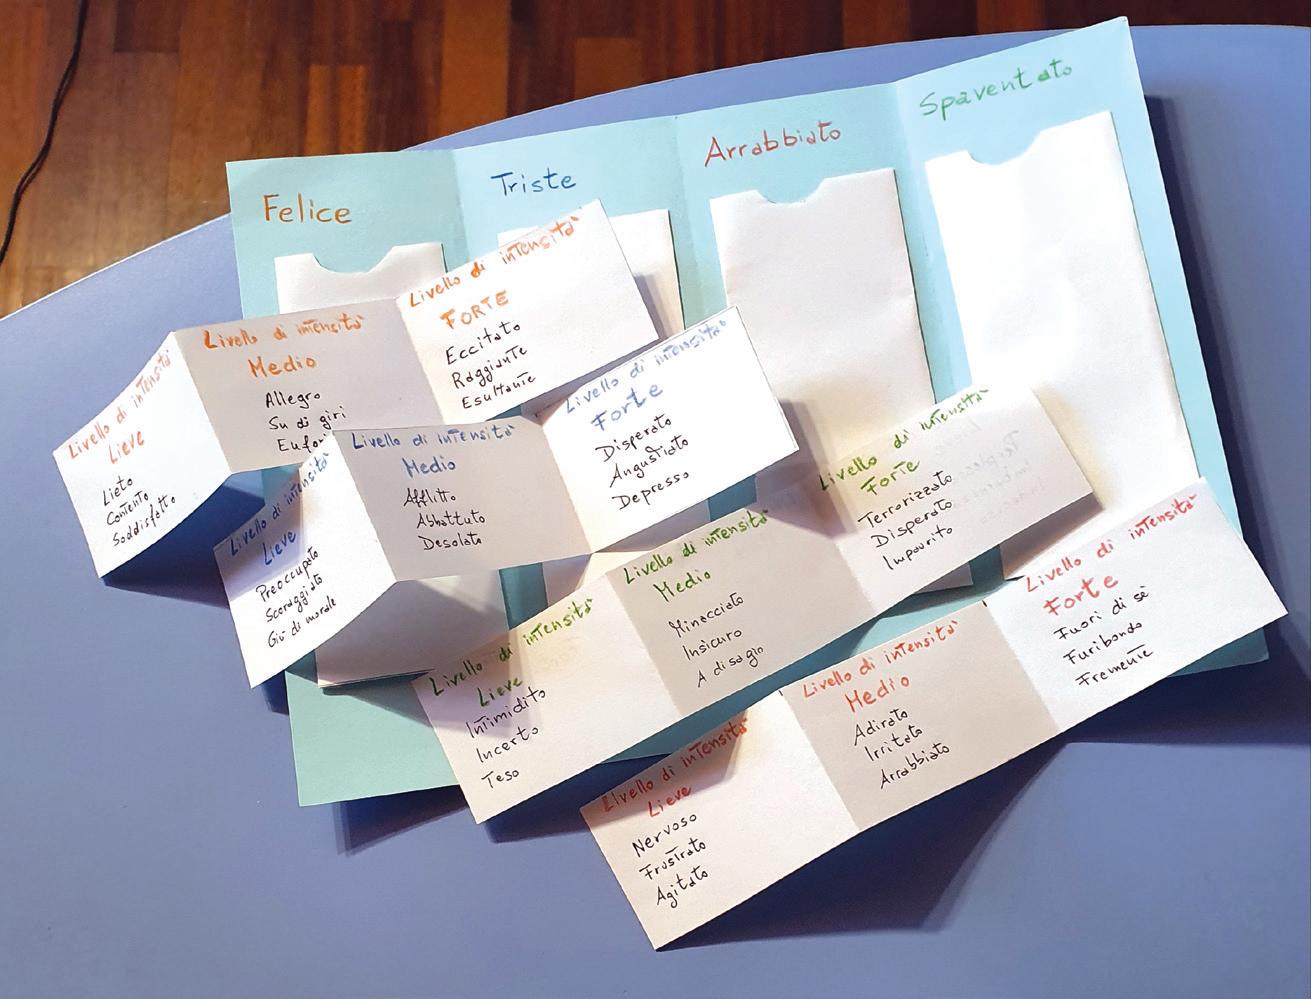 Felice
Triste
Arrabbiato
Spaventato
Livello di intensità
Lieve
Lieto
Contento
Soddisfatto
Livello di intensità
Medio
Allegro
Su di giri
Eufori
Livello di intensità
FORTE
Eccitato
Raggiante
Esultante
Livello di intensità
Lieve
Preoccupato
Scoraggiato
Giù di morale
Livello di intensità
Medio
Afflitto
Abbattuto
Desolato
Livello di intensità
Forte
Disperato
Angustiato
Depresso
Livello di intensità
Lieve
Intimidito
Incerto
Teso
Livello di intensità
Medio
Minacciato
Insicuro
A disagio
Livello di intensità
Forte
Terrorizzato
Disperato
Impaurito
Livello di intensità
Lieve
Nervoso
Frustrato
Agitato
Livello di intensità
Medio
Adirato
Irritato
Arrabbiato
Livello di intensità
Forte
Fuori di sè
Furibondo
Fremente